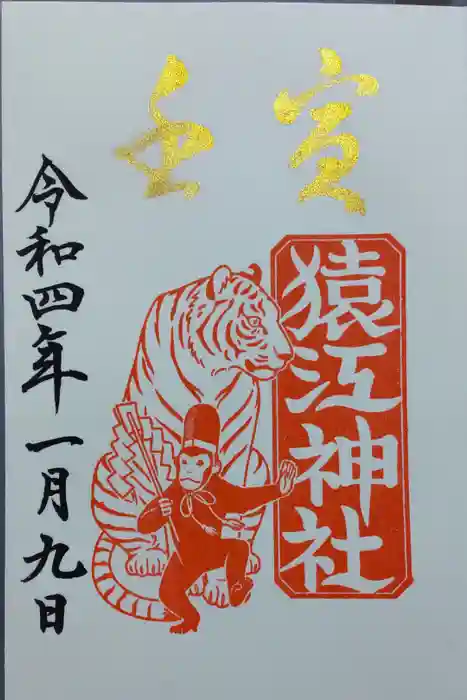 壬寅
猿江神社
令和四年一月九日